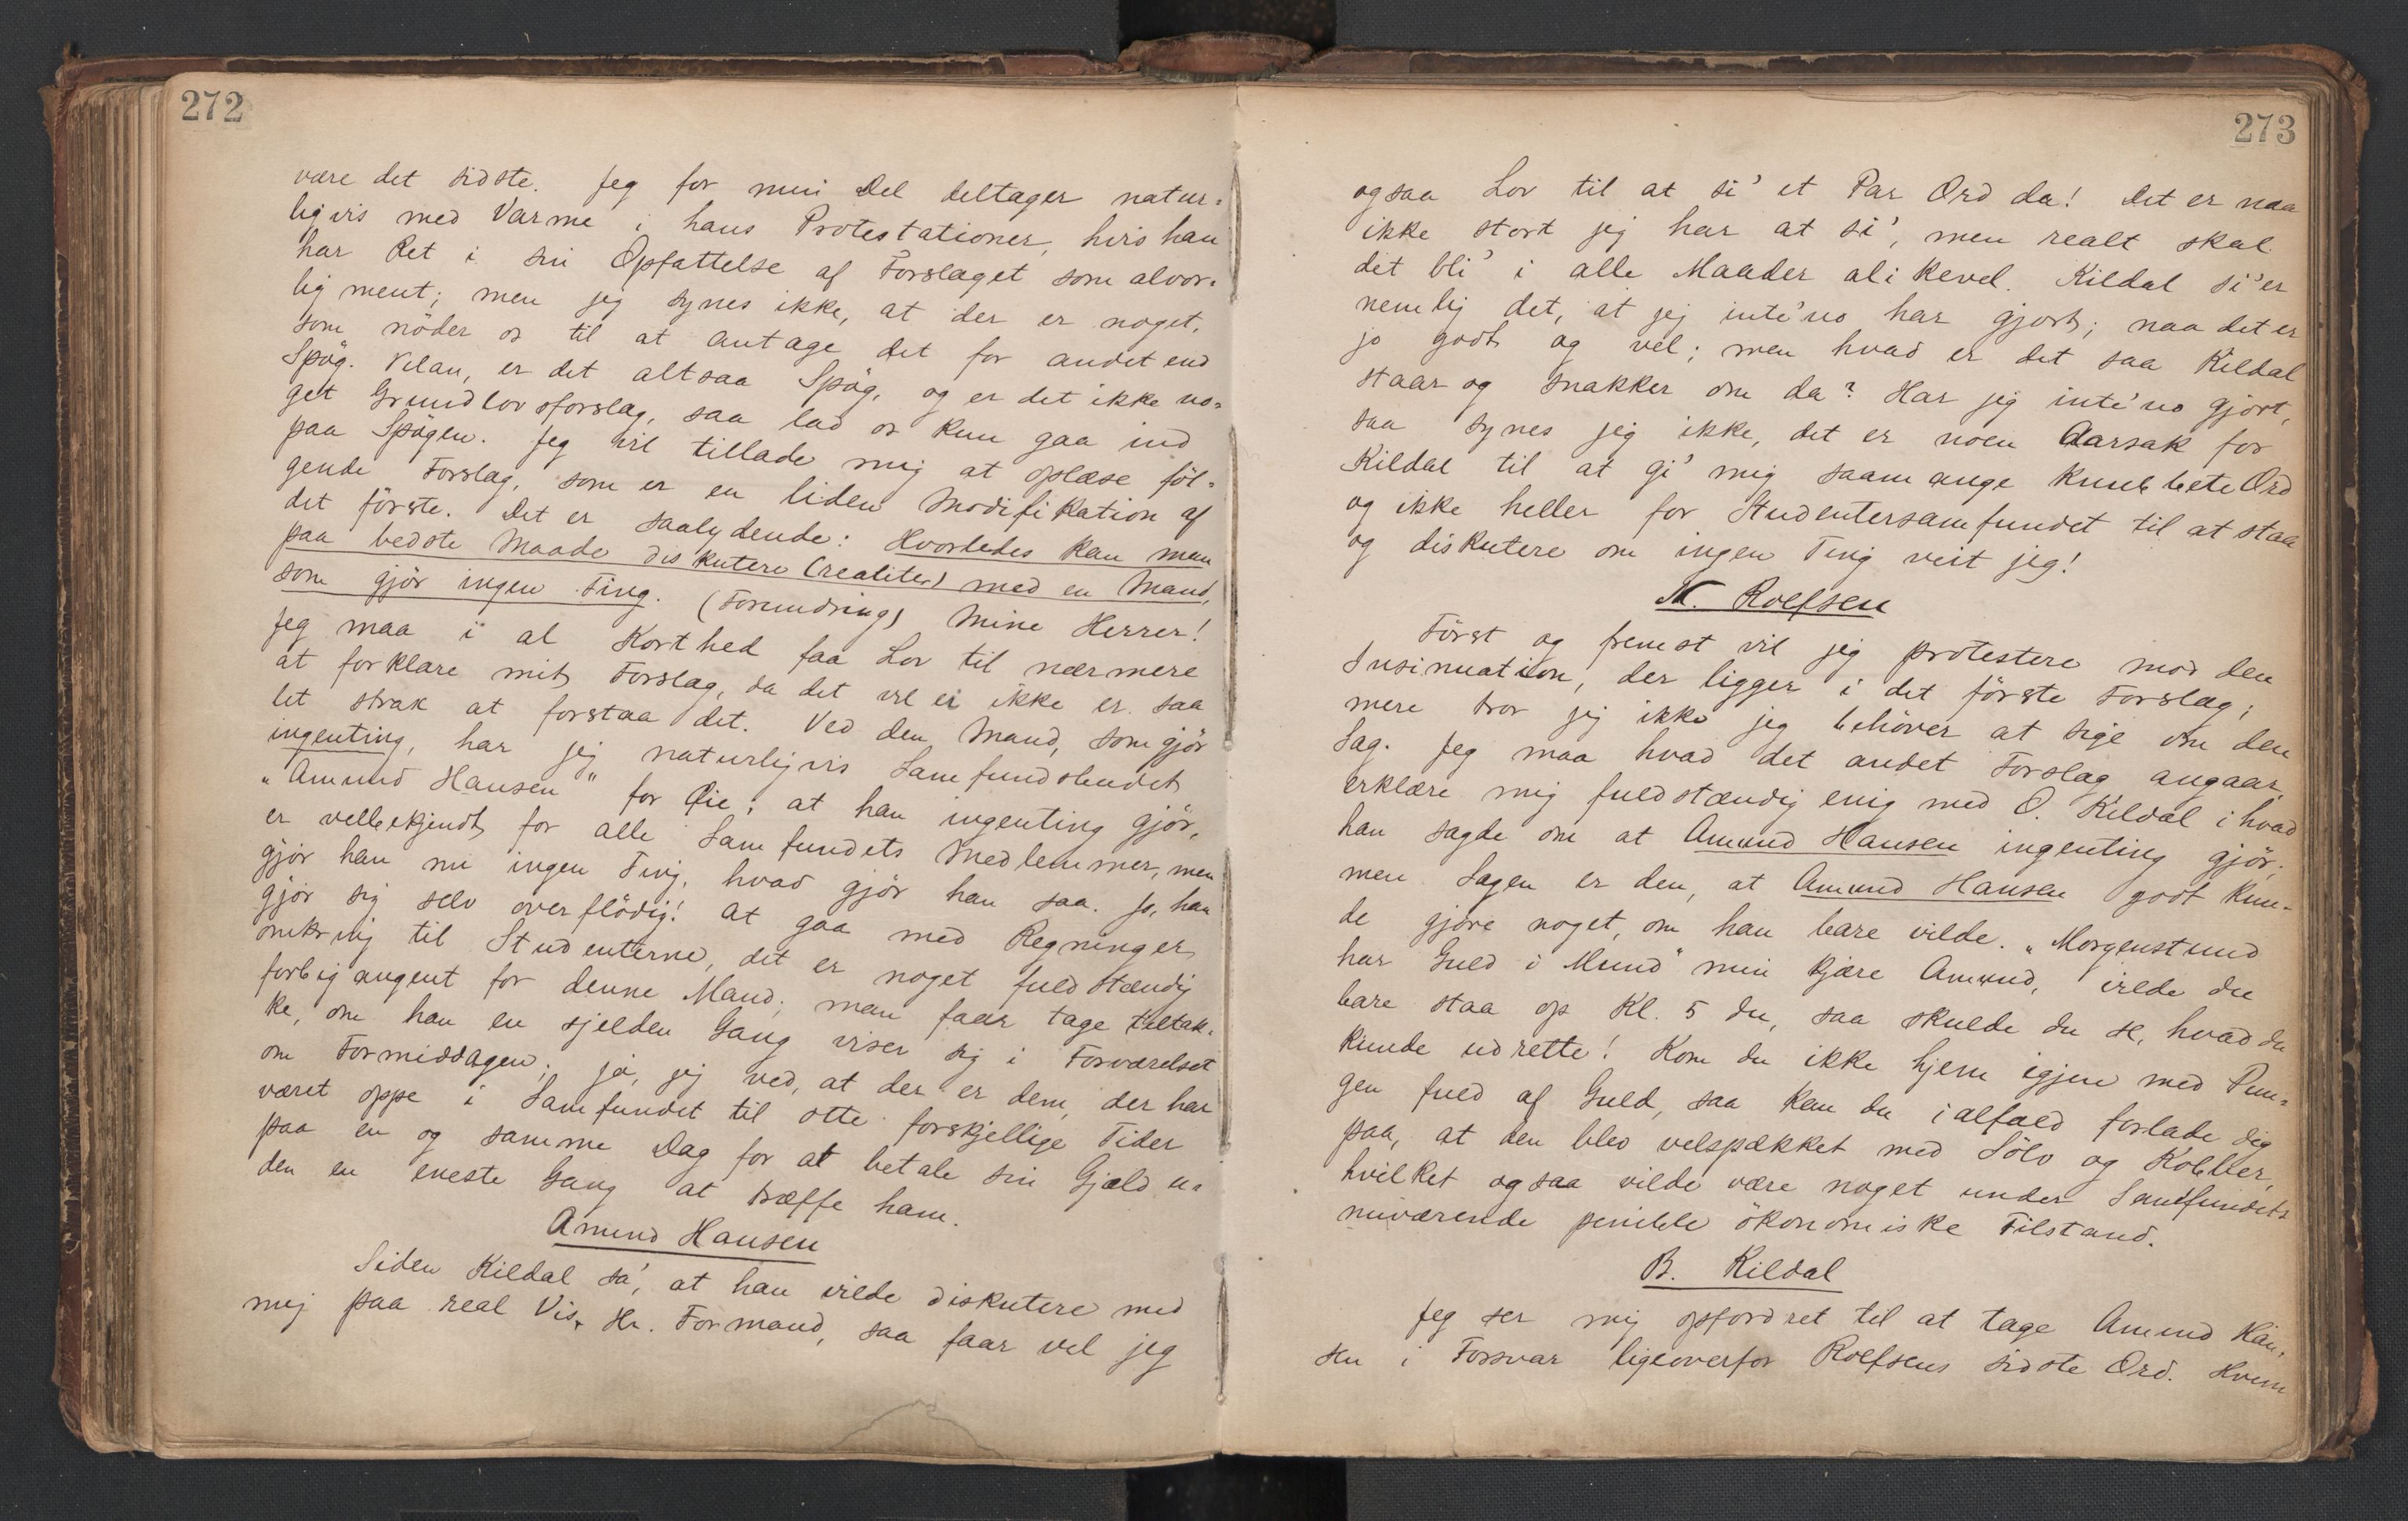 272
være det sidste. Jeg for min Del deltager natur=
ligvis med Varme i hans Protestationer, hvis han
har Ret i sin Opfattelse af Forslaget som alvor=
lig ment; men jeg synes ikke, at der er noget,
som nöder os til at antage det for andet end
Spög. Velan, er det altsaa Spög, og er det ikke no=
get Grundlovsforslag, saa lad os kun gaa ind
paa Spögen. Jeg vil tillade mig at oplæse föl=
gende Forslag, som er en liden Modifikation af
det förste. Det er saalydende: Hvorledes kan man
paa bedste Maade diskutere (realiter) med en Mand,
som gjör ingen Ting. (Forundring) Mine Herrer!
Jeg maa i al Korthed faa Lov til nærmere
at forklare mit Forslag, da det vel ei ikke er saa
let strax at forstaa det. Ved den Mand, som gjör
ingenting, har jeg naturligvis Samfundsbudet
"Amund Hansen" for Öie; at han ingenting gjör,
er velbekjendt for alle Samfundets Medlemmer, men
gjör han nu ingen Ting, hvad gjör han saa. Jo, han
gjör sig selv overflödig! At gaa med Regninger
omkring til Studenterne, det er noget fuldstændig
forbigangent for denne Mand; man faar tage tiltak=
ke, om han en sjelden Gang viser sig i Forværelset
om Formiddagen; ja, jeg ved, at der er dem, der har
været oppe i Samfundet til otte forskjellige Tider
paa en og samme Dag for at betale sin Gjæld u=
den en eneste Gang at træffe ham.
Amund Hansen
Siden Kildal sa', at han vilde diskutere med
mig paa real Vis, Hr. Formand, saa faar vel jeg
273
ogsaa Lov til at si' et Par Ord da! Det er naa
ikke stort jeg har at si', men realt skal
det bli' i alle Maader alikevel. Kildal si'er
nemlig det, at jeg inte'no har gjort; naa det er
jo godt og vel; men hvad er det saa Kildal
staar og snakker om da? Har jeg inte'no gjort,
saa synes jeg ikke, det er noen Aarsak for
Kildal til at gi' mig saamange knubbete Ord
og ikke heller for Studentersamfundet til at staa
og diskutere om ingen Ting veit jeg!
N. Rolfsen
Först og fremst vil jeg protestere mod den
Insinuation, der ligger i det förste Forslag;
mere tror jeg ikke jeg behöver at sige om den
Sag. Jeg maa hvad det andet Forslag angaar,
erklære mig fuldstændig enig med O. Kildal i hvad
han sagde om at Amund Hansen ingenting gjör;
men Sagen er den, at Amund Hansen godt kun=
de gjöre noget, om han bare vilde. "Morgenstund
har Guld i Mund" min kjære Amund, vilde du
bare staa op Kl. 5 du, saa skulde du se, hvad du
kunde udrette! Kom du ikke hjem igjen med Pun=
gen fuld af Guld, saa kan du ialfald forlade dig
paa, at den blev velspækket med Sölv og Kobber,
hvilket ogsaa vilde være noget under Samfundets
nuværende penible ökonomiske Tilstand.
B. Kildal
Jeg ser mig opfordret til at tage Amund Han=
sen i Forsvar ligeoverfor Rolfsens sidste Ord. Hvem